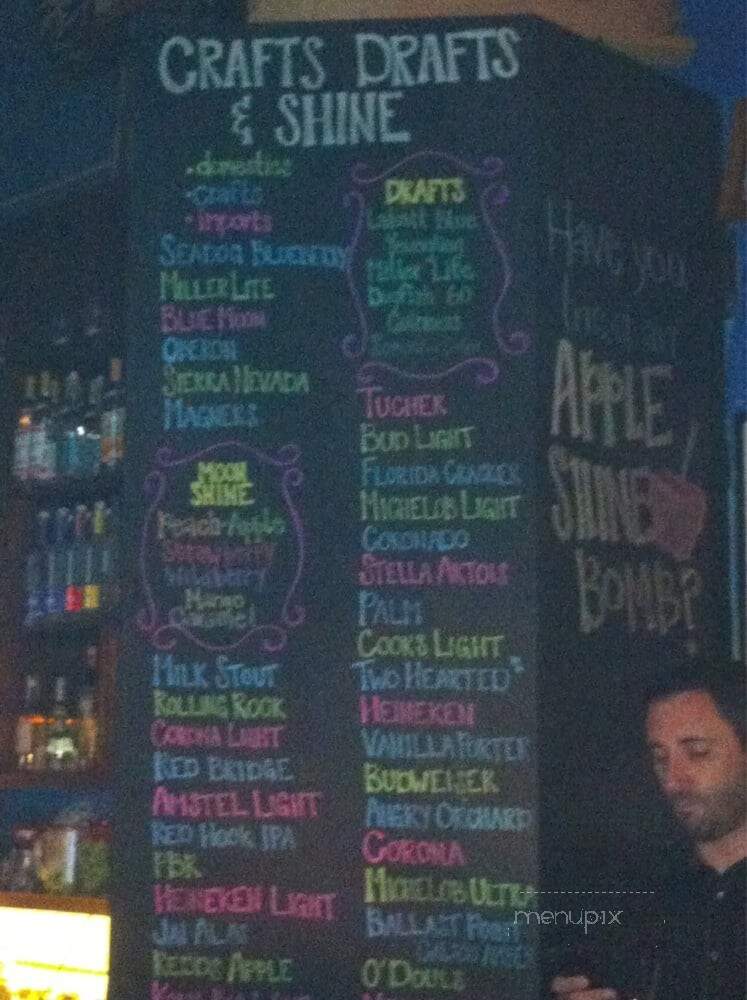 CRAFTS DRAFTS
& SHINE
• domestics
• crafts
• imports
SEADOG BLUEBERRY
MILLER LITE
BLUE MOON
OBERON
SIERRA NEVADA
MAGNERS
MOON
SHINE
Peach-Apple
Strawberry
Wildberry
Mango
Caramel
MILK STOUT
ROLLING ROCK
CORONA LIGHT
RED BRIDGE
AMSTEL LIGHT
RED HOOK IPA
PBR
HEINEKEN LIGHT
JAI ALAI
REDDS APPLE
DRAFTS
Labatt Blue
Yuengling
Miller Lite
Dogfish 60
Guinness
TUCHER
BUD LIGHT
FLORIDA CRACKER
MICHELOB LIGHT
CORONADO
STELLA ARTOIS
PALM
COORS LIGHT
TWO HEARTED
HEINEKEN
VANILLA PORTER
BUDWEISER
ANGRY ORCHARD
CORONA
MICHELOB ULTRA
BALLAST POINT
O'DOULS
Have you
APPLE
SHINE
BOMB?
menupix